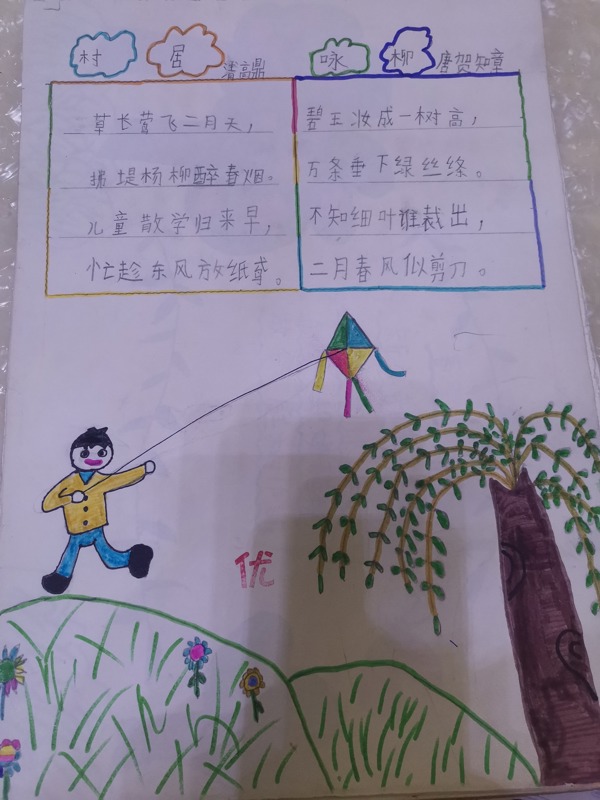 村居 清高鼎
草长莺飞二月天，
拂堤杨柳醉春烟。
儿童散学归来早，
忙趁东风放纸鸢。
咏柳 唐贺知章
碧玉妆成一树高，
万条垂下绿丝绦。
不知细叶谁裁出，
二月春风似剪刀。
优